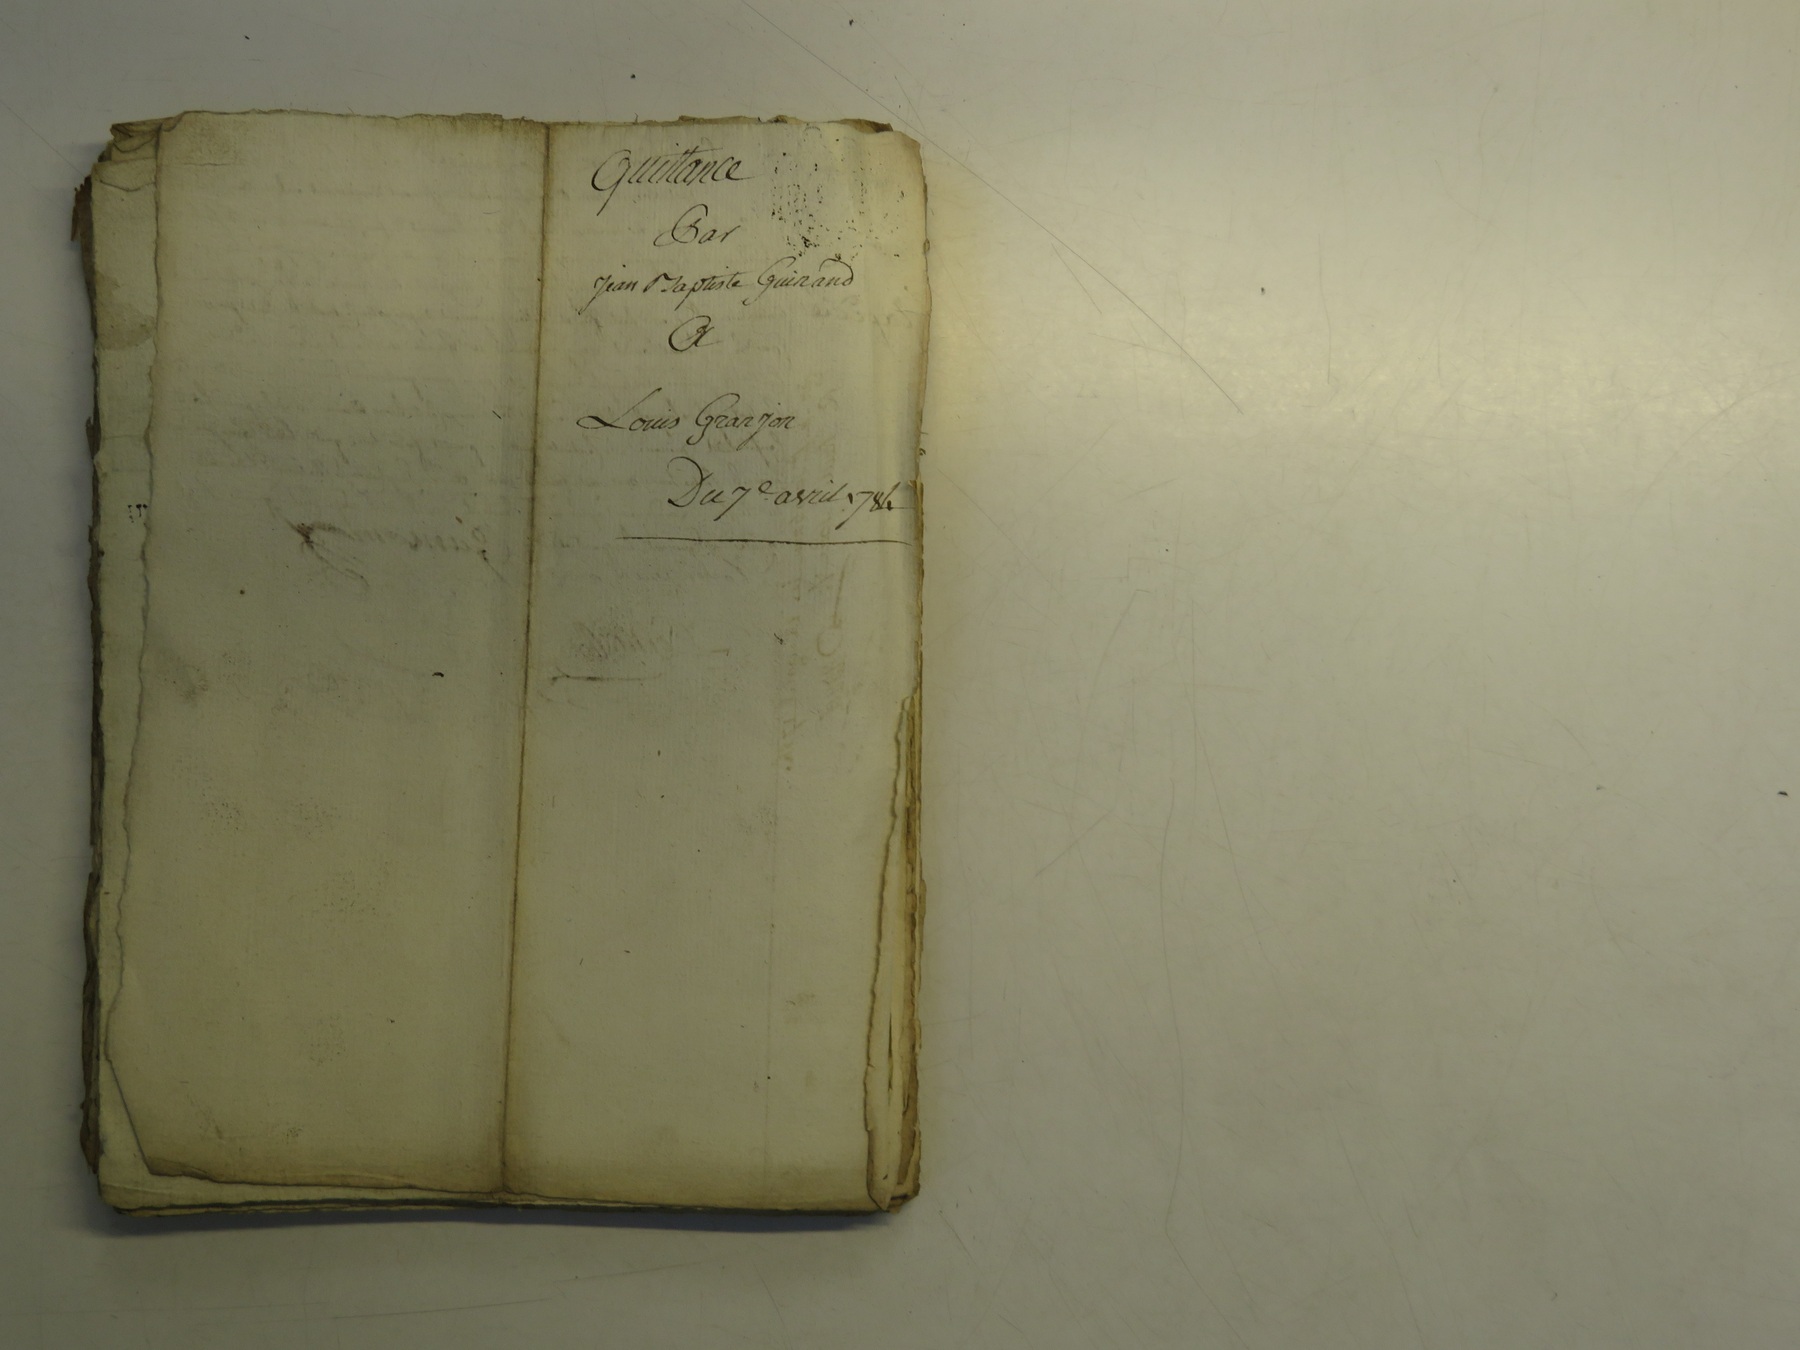 Quittance
Par
Jean Baptiste Guirand
A
Louis Granjon
Du 7e avril 1784